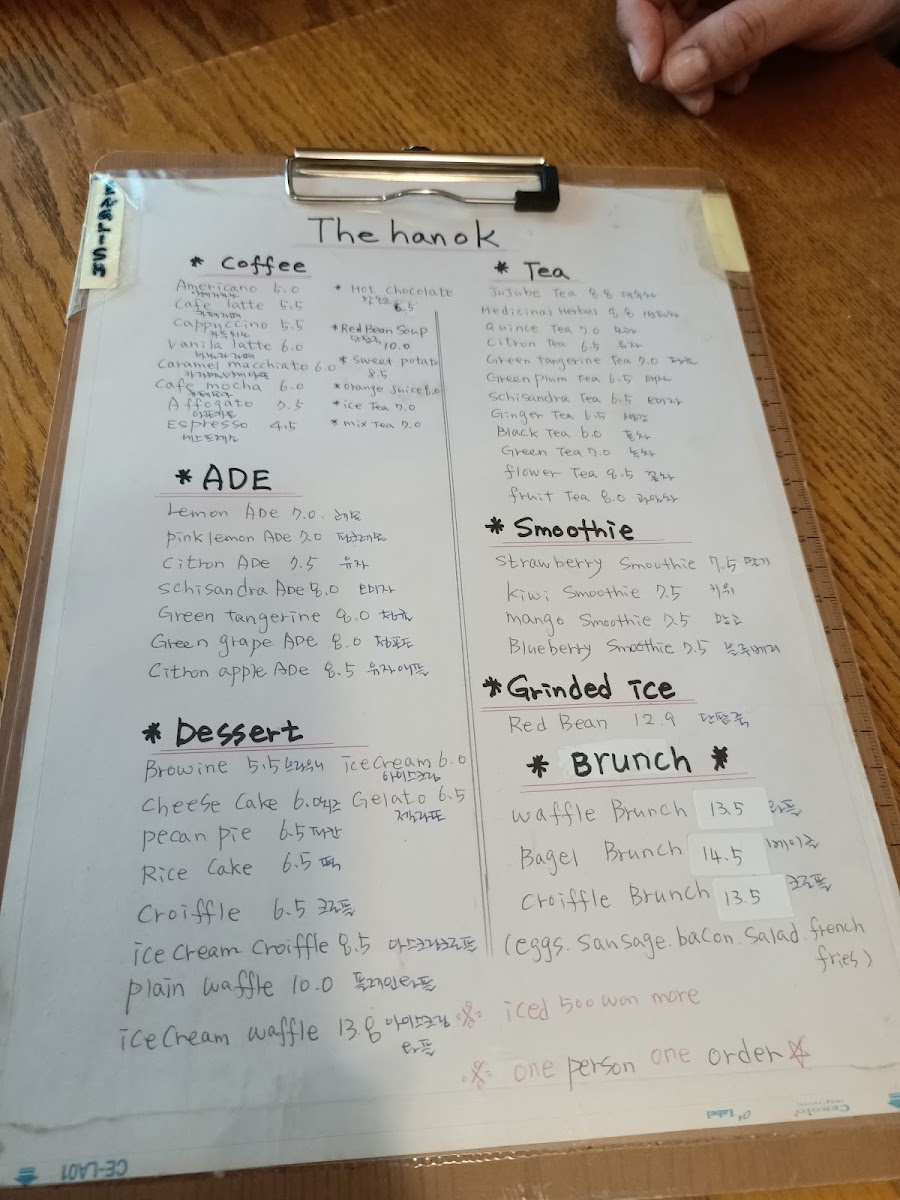 ENGLISH
The hanok
* Coffee
Americano 5.0
아메리카노
Cafe latte 5.5
카페라떼
Cappuccino 5.5
카푸치노
Vanila latte 6.0
바닐라라떼
Caramel macchiato 6.0
카라멜마끼아또
Cafe mocha 6.0
카페모카
Affogato 7.5
아포가토
Espresso 4.5
에스프레소
* Hot chocolate
6.5
* Red Bean Soup
단팥죽 10.0
* Sweet potato
8.5
* orange juice 8.0
* ice Tea 7.0
* mix Tea 7.0
* ADE
Lemon ADE 7.0. 레몬
pink lemon ADE 7.0 핑크레몬
Citron ADE 7.5 유자
Schisandra ADE 8.0 오미자
Green tangerine 8.0 청귤
Green grape ADE 8.0 청포도
Citron apple ADE 8.5 유자애플
* Dessert
Browine 5.5 브라우니 ice cream 6.0
아이스크림
Cheese Cake 6.0 치즈 Gelato 6.5
젤라또
pecan pie 6.5 피칸
Rice Cake 6.5 떡
Croiffle 6.5 크로플
ice cream croiffle 8.5 아스크림크로플
plain waffle 10.0 플레인와플
ice cream waffle 13.8 아이스크림
와플
* Tea
JuJube Tea 8.8 대추차
Medicinal Herbal 8.8 쌍화차
Quince Tea 7.0 모과
Citron Tea 6.5 유자
Green tangerine Tea 7.0 청귤
Green plum Tea 6.5 매실
Schisandra Tea 6.5 오미자
Ginger Tea 6.5 생강
Black Tea 6.0 홍차
Green Tea 7.0 녹차
flower Tea 8.5 꽃차
fruit Tea 8.0 과일차
* Smoothie
Strawberry Smoothie 7.5 딸기
kiwi Smoothie 7.5 키위
mango Smoothie 7.5 망고
Blueberry Smoothie 7.5 블루베리
* Grinded ice
Red Bean 12.9 단팥죽
* Brunch *
waffle Brunch 13.5 와플
Bagel Brunch 14.5 베이글
Croiffle Brunch 13.5 크로플
(eggs. Sansage. bacon. Salad. french
fries)
※ iced 500 won more
※ one person one order ☆
Label
CE-LA01